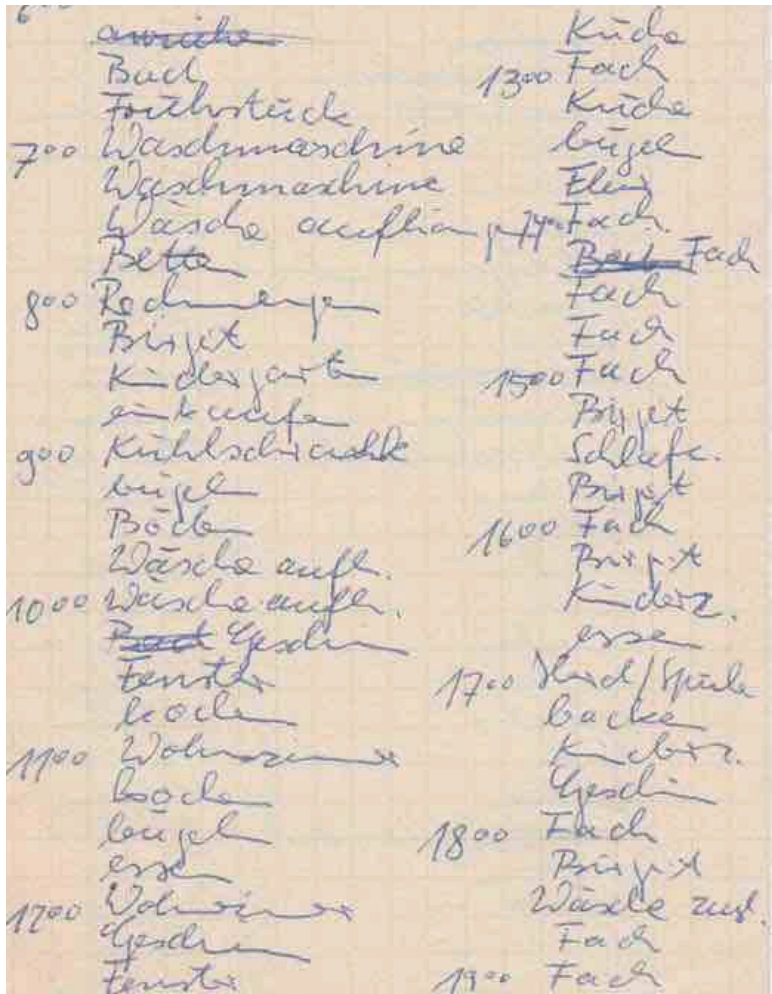 600
Buch
Frühstück
700 Waschmaschine
Waschmaschine
Wäsche aufhängen
Betten
800 Rechnungen
Birgit
Kindergarten
einkaufen
900 Kühlschrank
bügeln
Böden
Wäsche aufh.
1000 Wäsche aufh.
Geschirr
Fenster
kochen
1100 Wohnzimmer
kochen
bügeln
essen
1200 Wohnzimmer
Geschirr
Fenster
Küche
1300 Fach
Küche
bügeln
1400 Fach.
Fach
Fach
Fach
1500 Fach
Birgit
Schlafz.
Birgit
1600 Fach
Birgit
Kinderz.
essen
1700 Herd/Spüle
backen
Kinderz.
Geschirr
1800 Fach
Birgit
Wäsche zusl.
Fach
1900 Fach